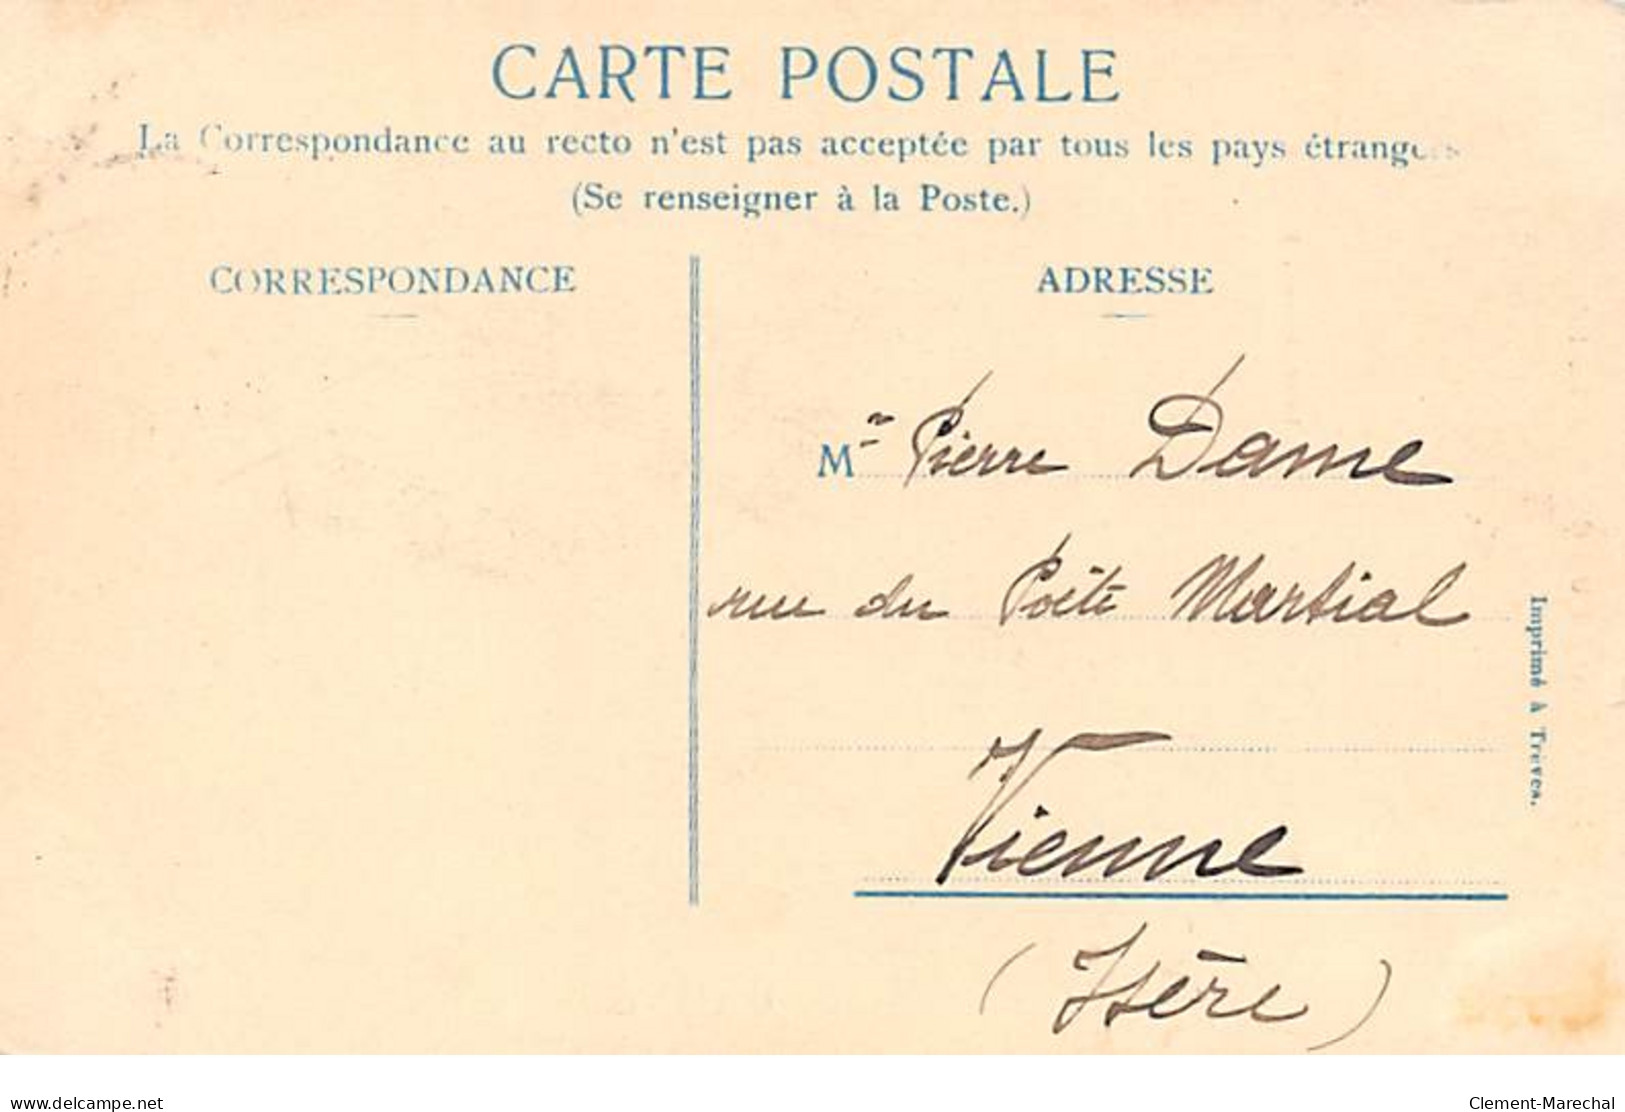 CARTE POSTALE
La Correspondance au recto n'est pas acceptée par tous les pays étrangers
(Se renseigner à la Poste.)
CORRESPONDANCE
ADRESSE
Mr Pierre Dame
rue du Poète Martial
Vienne
(Isère)
Imprimé à Trèves.
delcampe.net
Clement-Marechal